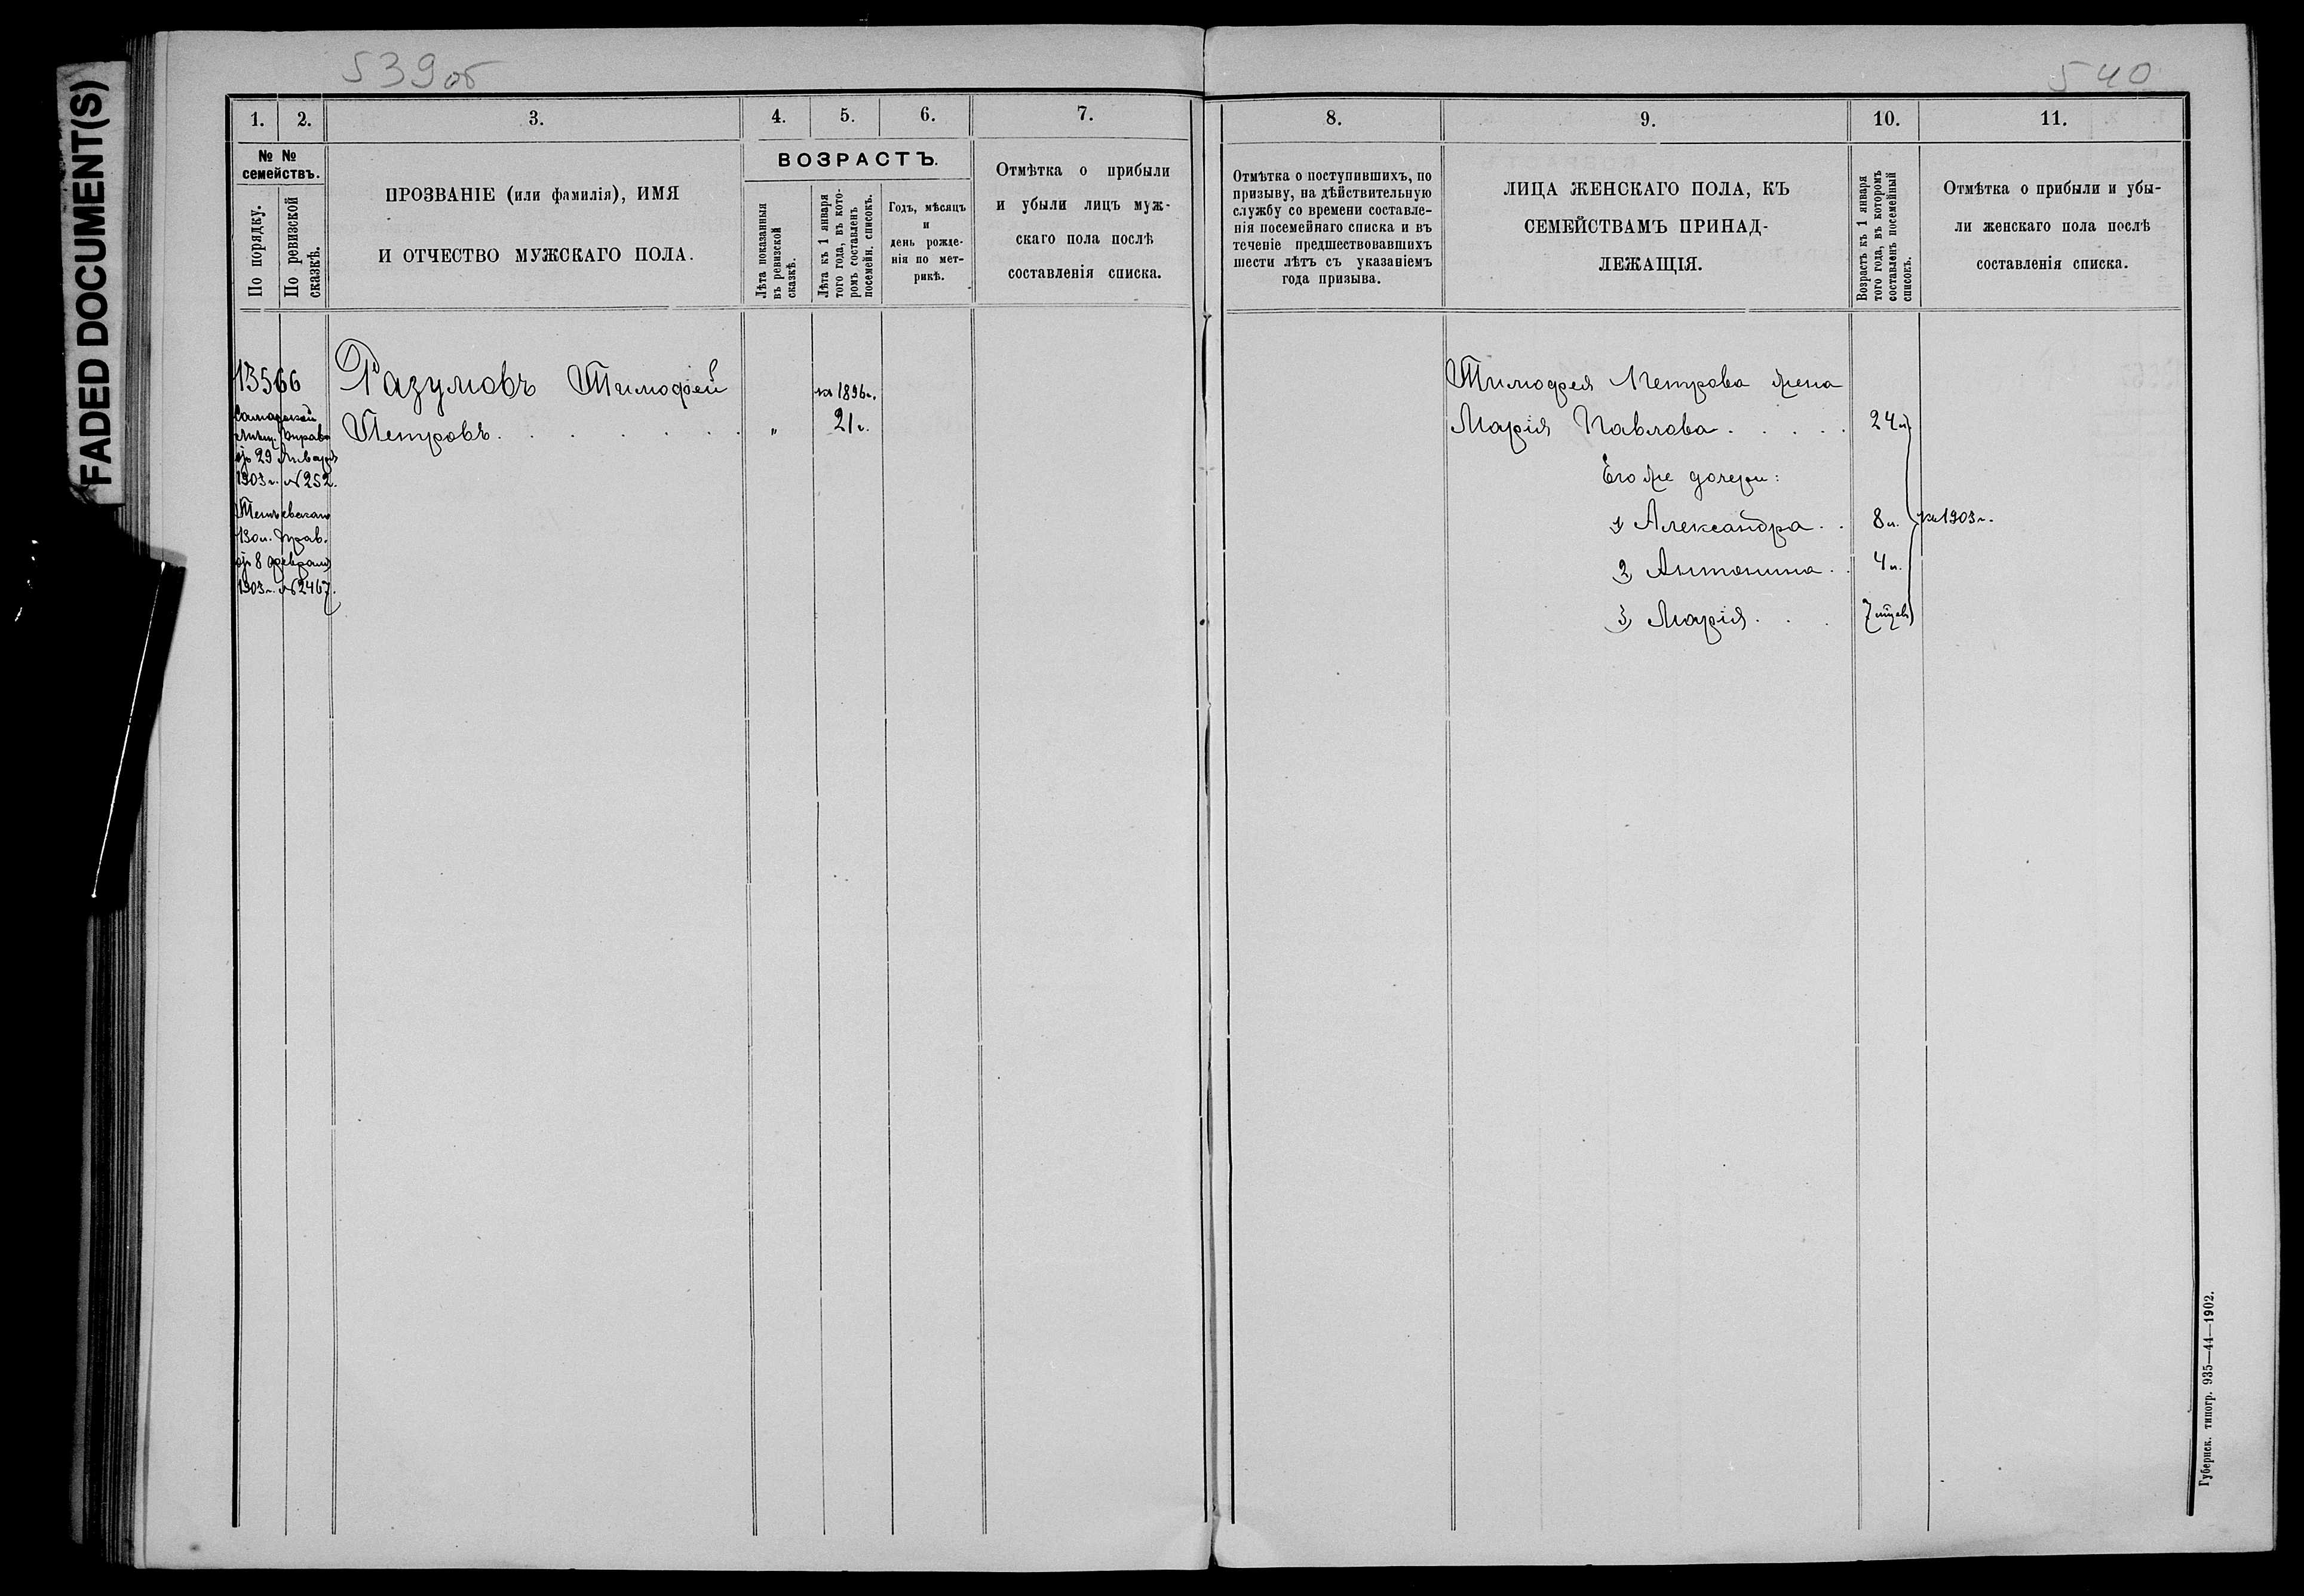 FADED DOCUMENT(S)
539 об
540
1. 2. 3. 4. 5. 6. 7.
№ №
семействъ.
По порядку.
По ревизской
сказкѣ.
ПРОЗВАНІЕ (или фамилія), ИМЯ
И ОТЧЕСТВО МУЖСКАГО ПОЛА.
ВОЗРАСТЪ.
Лѣта показанныя
въ ревизской
сказкѣ.
Лѣта къ 1 января
того года, въ кото-
ромъ составленъ
посемейн. списокъ.
Годъ, мѣсяцъ
и
день рожде-
нія по мет-
рикѣ.
Отмѣтка о прибыли
и убыли лицъ муж-
скаго пола послѣ
составленія списка.
13566
Самарской
мѣщ. Управы
29 Января
1903 г. № 252.
Прав.
8 февраля
1903 г. № 2467.
Разумовъ Тимофей
Петровъ . . . . . . .
"
на 1896 г.
21 г.
8. 9. 10. 11.
Отмѣтка о поступившихъ, по
призыву, на дѣйствительную
службу со времени составле-
нія посемейнаго списка и въ
теченіе предшествовавшихъ
шести лѣтъ съ указаніемъ
года призыва.
ЛИЦА ЖЕНСКАГО ПОЛА, КЪ
СЕМЕЙСТВАМЪ ПРИНАД-
ЛЕЖАЩІЯ.
Возрастъ къ 1 января
того года, въ которомъ
составленъ посемейный
списокъ.
Отмѣтка о прибыли и убы-
ли женскаго пола послѣ
составленія списка.
Тимофея Петрова жена
Марія Павлова . . . . . 24 л.
Его же дочери:
1) Александра . . 8 л. на 1903 г.
2) Антонина . . 4 л.
3) Марія . . . 7 мѣсяц
Губернск. типогр. 935—44—1902.